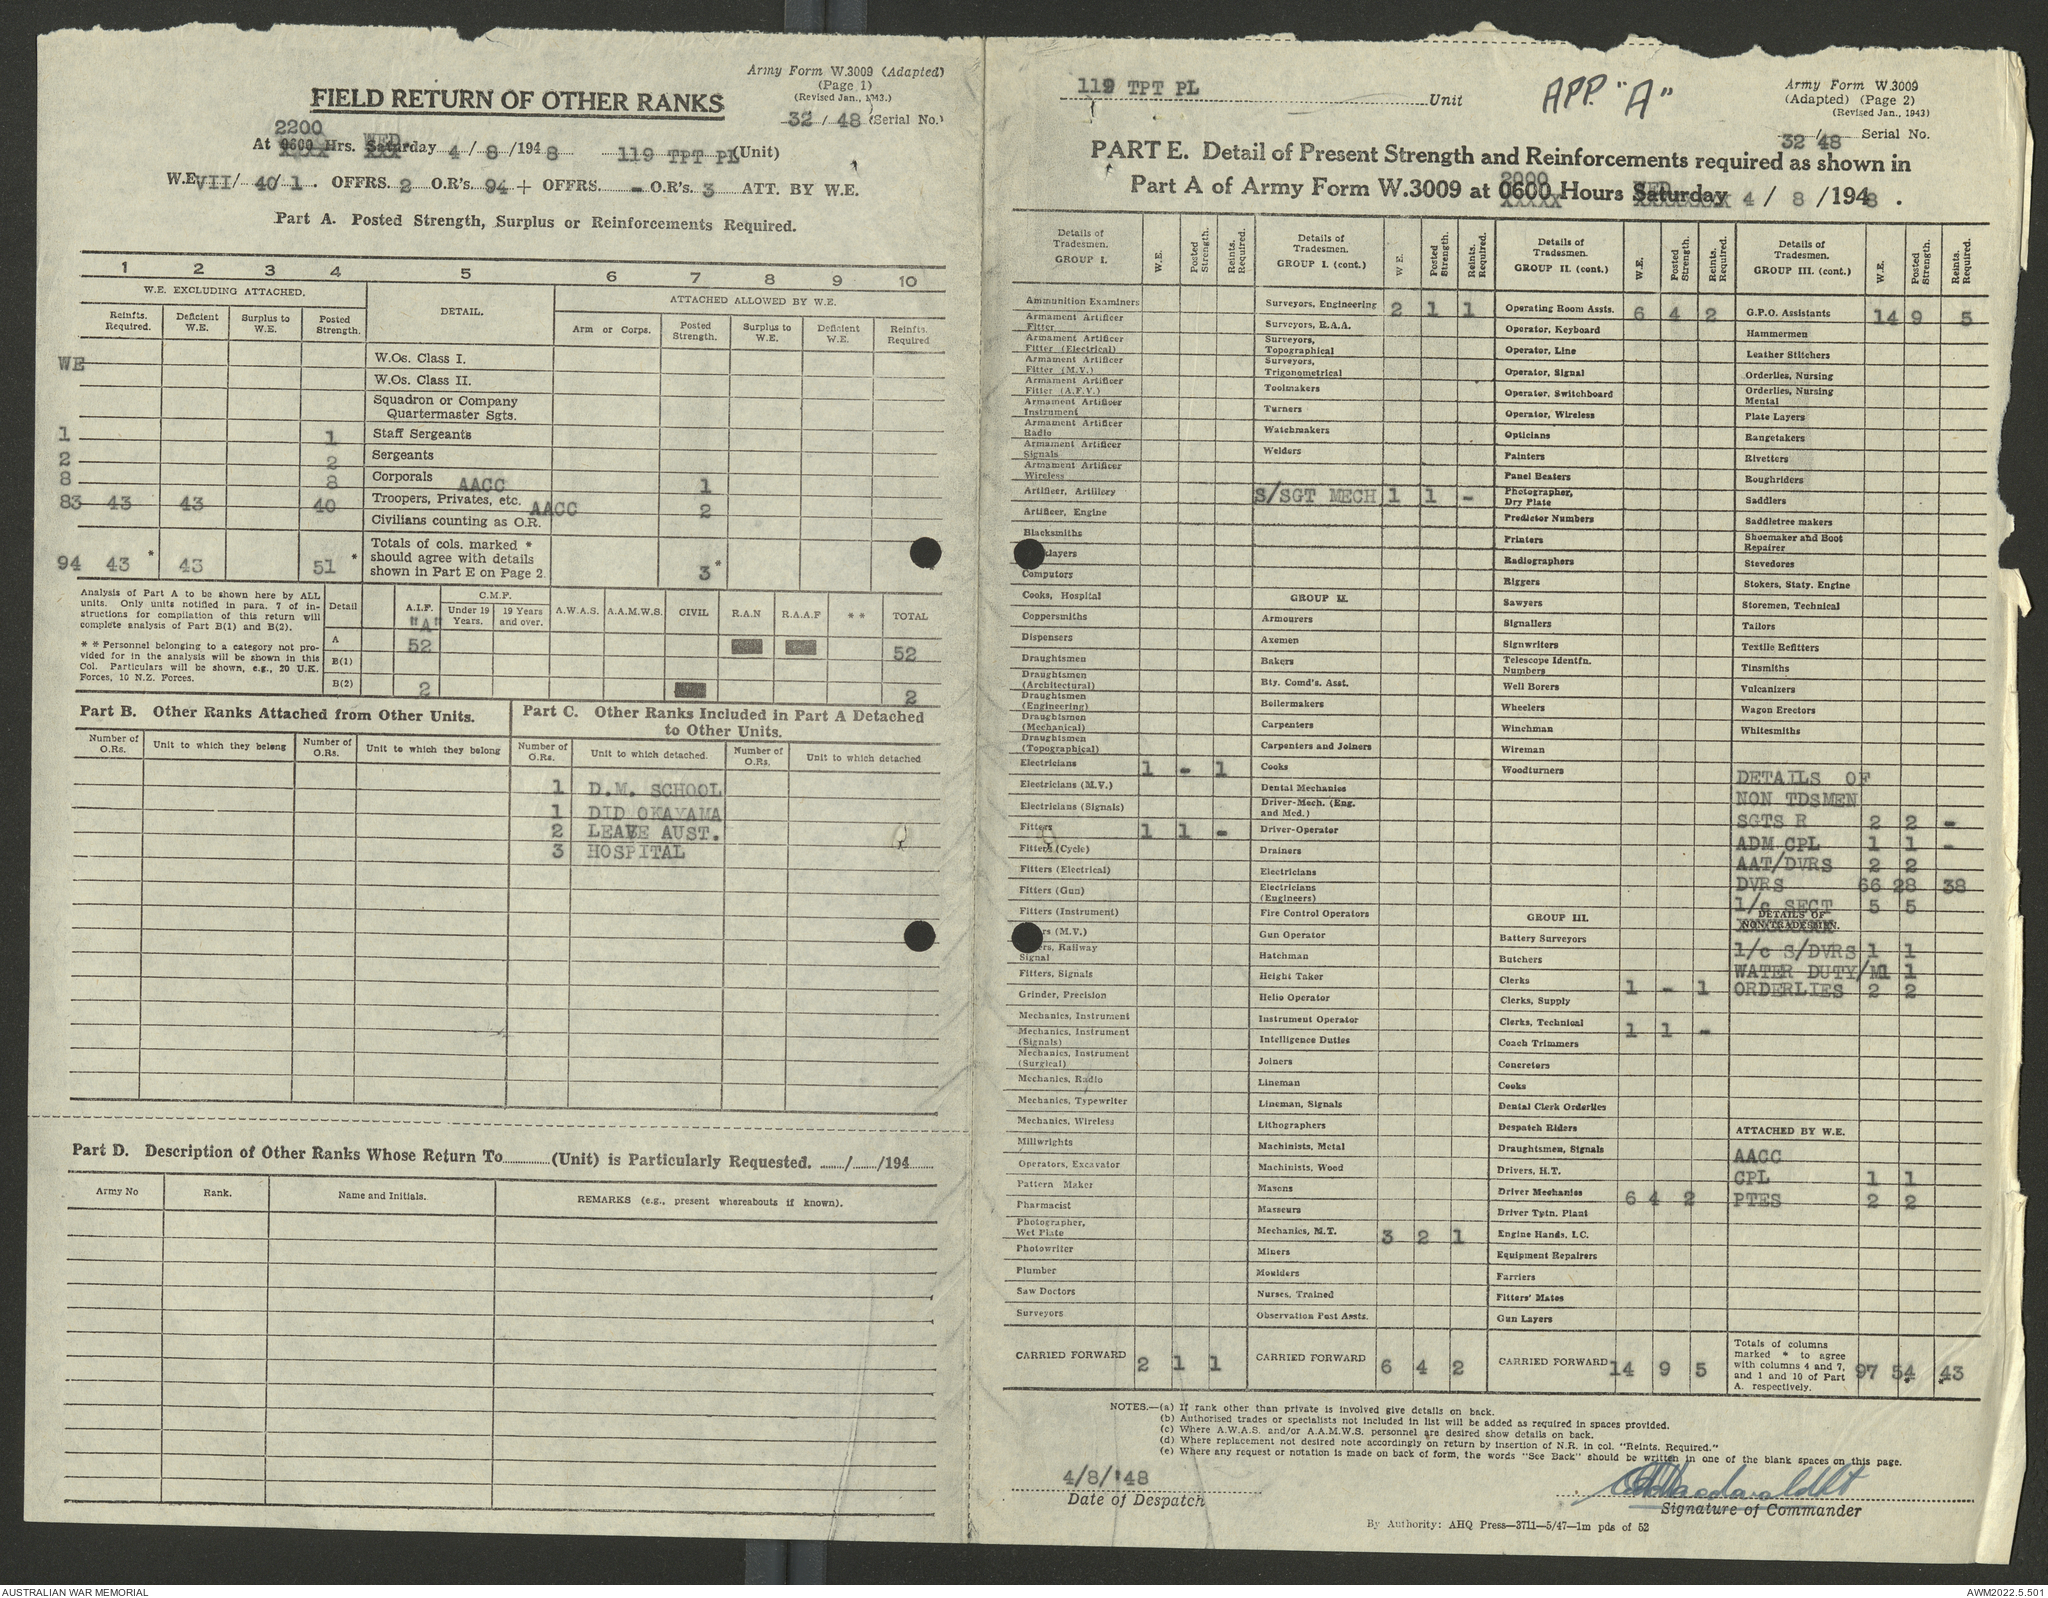 Army Form W.3009 (Adapted)
(Page 1)
(Revised Jan., 1943.)
FIELD RETURN OF OTHER RANKS
32 / 48 (Serial No.)
2200 WED
At 0600 Hrs. Saturday 4 / 8 /1948 119 TPT PL (Unit)
W.E. VII/ 40/1 . OFFRS. 2 O.R's. 94 + OFFRS. - O.R's. 3 ATT. BY W.E.
Part A. Posted Strength, Surplus or Reinforcements Required.
1 2 3 4 5 6 7 8 9 10
W.E. EXCLUDING ATTACHED. DETAIL. ATTACHED ALLOWED BY W.E.
Reinfts. Required. Deficient W.E. Surplus to W.E. Posted Strength. Arm or Corps. Posted Strength. Surplus to W.E. Deficient W.E. Reinfts. Required
WE W.Os. Class I.
W.Os. Class II.
Squadron or Company
Quartermaster Sgts.
1 1 Staff Sergeants
2 2 Sergeants
8 8 Corporals AACC 1
83 43 43 40 Troopers, Privates, etc. AACC 2
Civilians counting as O.R.
94 43 * 43 51 * Totals of cols. marked * should agree with details shown in Part E on Page 2. 3 *
Analysis of Part A to be shown here by ALL
units. Only units notified in para. 7 of in-
structions for compilation of this return will
complete analysis of Part B(1) and B(2).
* * Personnel belonging to a category not pro-
vided for in the analysis will be shown in this
Col. Particulars will be shown, e.g., 20 U.K.
Forces, 10 N.Z. Forces.
Detail A.I.F. "A" C.M.F. Under 19 Years. 19 Years and over. A.W.A.S. A.A.M.W.S. CIVIL R.A.N R.A.A.F * * TOTAL
A 52 52
B(1)
B(2) 2 2
Part B. Other Ranks Attached from Other Units.
Number of O.Rs. Unit to which they belong Number of O.Rs. Unit to which they belong
Part C. Other Ranks Included in Part A Detached
to Other Units.
Number of O.Rs. Unit to which detached. Number of O.Rs. Unit to which detached
1 D.M. SCHOOL
1 DID OKAYAMA
2 LEAVE AUST.
3 HOSPITAL
Part D. Description of Other Ranks Whose Return To............(Unit) is Particularly Requested. ......./......./194.......
Army No Rank. Name and Initials. REMARKS (e.g., present whereabouts if known).
119 TPT PL Unit
APP. "A"
Army Form W.3009
(Adapted) (Page 2)
(Revised Jan., 1943)
32/48 Serial No.
PART E. Detail of Present Strength and Reinforcements required as shown in
2000 WED
Part A of Army Form W.3009 at 0600 Hours Saturday 4 / 8 /1948 .
Details of Tradesmen. GROUP I. W.E. Posted Strength. Reints. Required.
Ammunition Examiners
Armament Artificer Fitter
Armament Artificer Fitter (Electrical)
Armament Artificer Fitter (M.V.)
Armament Artificer Fitter (A.F.V.)
Armament Artificer Instrument
Armament Artificer Radio
Armament Artificer Signals
Armament Artificer Wireless
Artificer, Artillery
Artificer, Engine
Blacksmiths
layers
Computors
Cooks, Hospital
Coppersmiths
Dispensers
Draughtsmen
Draughtsmen (Architectural)
Draughtsmen (Engineering)
Draughtsmen (Mechanical)
Draughtsmen (Topographical)
Electricians 1 - 1
Electricians (M.V.)
Electricians (Signals)
Fitters 1 1 -
Fitters (Cycle)
Fitters (Electrical)
Fitters (Gun)
Fitters (Instrument)
rs (M.V.)
ers, Railway Signal
Fitters, Signals
Grinder, Precision
Mechanics, Instrument
Mechanics, Instrument (Signals)
Mechanics, Instrument (Surgical)
Mechanics, Radio
Mechanics, Typewriter
Mechanics, Wireless
Millwrights
Operators, Excavator
Pattern Maker
Pharmacist
Photographer, Wet Plate
Photowriter
Plumber
Saw Doctors
Surveyors
CARRIED FORWARD 2 1 1
Details of Tradesmen. GROUP I. (cont.) W.E. Posted Strength. Reints. Required.
Surveyors, Engineering 2 1 1
Surveyors, R.A.A.
Surveyors, Topographical
Surveyors, Trigonometrical
Toolmakers
Turners
Watchmakers
Welders
S/SGT MECH 1 1 -
GROUP II.
Armourers
Axemen
Bakers
Bty. Comd's. Asst.
Boilermakers
Carpenters
Carpenters and Joiners
Cooks
Dental Mechanics
Driver-Mech. (Eng. and Med.)
Driver-Operator
Drainers
Electricians
Electricians (Engineers)
Fire Control Operators
Gun Operator
Hatchman
Height Taker
Helio Operator
Instrument Operator
Intelligence Duties
Joiners
Lineman
Lineman, Signals
Lithographers
Machinists, Metal
Machinists, Wood
Masons
Masseurs
Mechanics, M.T. 3 2 1
Miners
Moulders
Nurses, Trained
Observation Post Assts.
CARRIED FORWARD 6 4 2
Details of Tradesmen. GROUP II. (cont.) W.E. Posted Strength. Reints. Required.
Operating Room Assts. 6 4 2
Operator, Keyboard
Operator, Line
Operator, Signal
Operator, Switchboard
Operator, Wireless
Opticians
Painters
Panel Beaters
Photographer, Dry Plate
Predictor Numbers
Printers
Radiographers
Riggers
Sawyers
Signallers
Signwriters
Telescope Identfn. Numbers
Well Borers
Wheelers
Winchman
Wireman
Woodturners
GROUP III.
Battery Surveyors
Butchers
Clerks 1 - 1
Clerks, Supply
Clerks, Technical 1 1 -
Coach Trimmers
Concretors
Cooks
Dental Clerk Orderlies
Despatch Riders
Draughtsmen, Signals
Drivers, H.T.
Driver Mechanics 6 4 2
Driver Tptn. Plant
Engine Hands, I.C.
Equipment Repairers
Farriers
Fitters' Mates
Gun Layers
CARRIED FORWARD 14 9 5
Details of Tradesmen. GROUP III. (cont.) W.E. Posted Strength. Reints. Required.
G.P.O. Assistants 14 9 5
Hammermen
Leather Stitchers
Orderlies, Nursing
Orderlies, Nursing Mental
Plate Layers
Rangetakers
Rivetters
Roughriders
Saddlers
Saddletree makers
Shoemaker and Boot Repairer
Stevedores
Stokers, Staty. Engine
Storemen, Technical
Tailors
Textile Refitters
Tinsmiths
Vulcanizers
Wagon Erectors
Whitesmiths
DETAILS OF
NON TDSMEN
SGTS R 2 2 -
ADM CPL 1 1 -
AAT/DVRS 2 2
DVRS 66 28 38
1/c SECT 5 5
DETAILS OF
NON-TRADESMEN.
1/c S/DVRS 1 1
WATER DUTY/M 1 1
ORDERLIES 2 2
ATTACHED BY W.E.
AACC
CPL 1 1
PTES 2 2
Totals of columns marked * to agree with columns 4 and 7, and 1 and 10 of Part A. respectively. 97 54* 43*
NOTES.—(a) If rank other than private is involved give details on back.
(b) Authorised trades or specialists not included in list will be added as required in spaces provided.
(c) Where A.W.A.S. and/or A.A.M.W.S. personnel are desired show details on back.
(d) Where replacement not desired note accordingly on return by insertion of N.R. in col. "Reints. Required."
(e) Where any request or notation is made on back of form, the words "See Back" should be written in one of the blank spaces on this page.
4/8/'48
Date of Despatch
Signature of Commander
By Authority: AHQ Press—3711—5/47—1m pds of 52
AUSTRALIAN WAR MEMORIAL
AWM2022.5.501